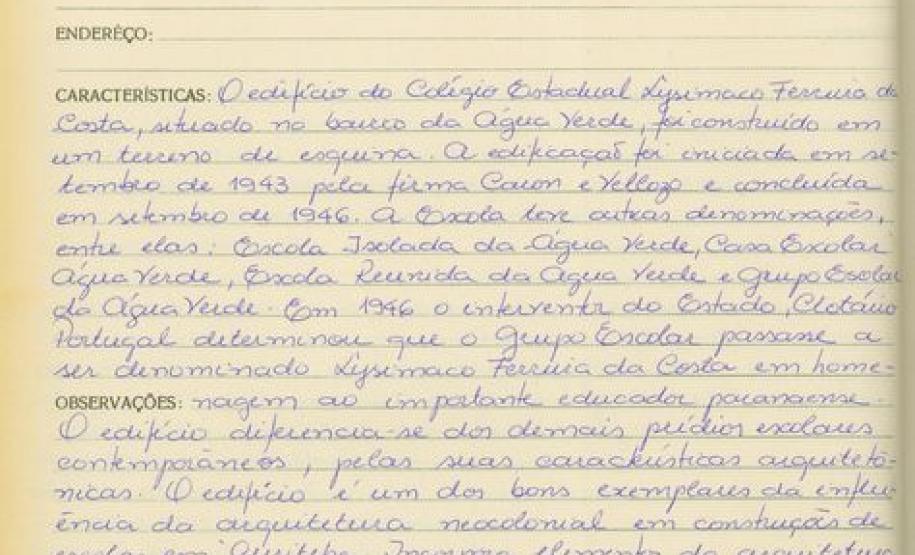 ENDERÊÇO:
CARACTERÍSTICAS: O edifício do Colégio Estadual Lysimaco Ferreira da
Costa, situado no bairro da Água Verde, foi construído em
um terreno de esquina. A edificação foi iniciada em se-
tembro de 1943 pela firma Caron e Vellozo e concluída
em setembro de 1946. A Escola teve outras denominações,
entre elas: Escola Isolada da Água Verde, Casa Escolar
Água Verde, Escola Reunida da Água Verde e Grupo Escolar
da Água Verde. Em 1946 o interventor do Estado, Clotário
Portugal determinou que o Grupo Escolar passasse a
ser denominado Lysimaco Ferreira da Costa em home-
OBSERVAÇÕES: nagem ao importante educador paranaense.
O edifício diferencia-se dos demais prédios escolares
contemporâneos, pelas suas características arquitetô-
nicas. O edifício é um dos bons exemplares da influ-
ência da arquitetura neocolonial em construções de
escolas em Curitiba. elemento da arquitetura